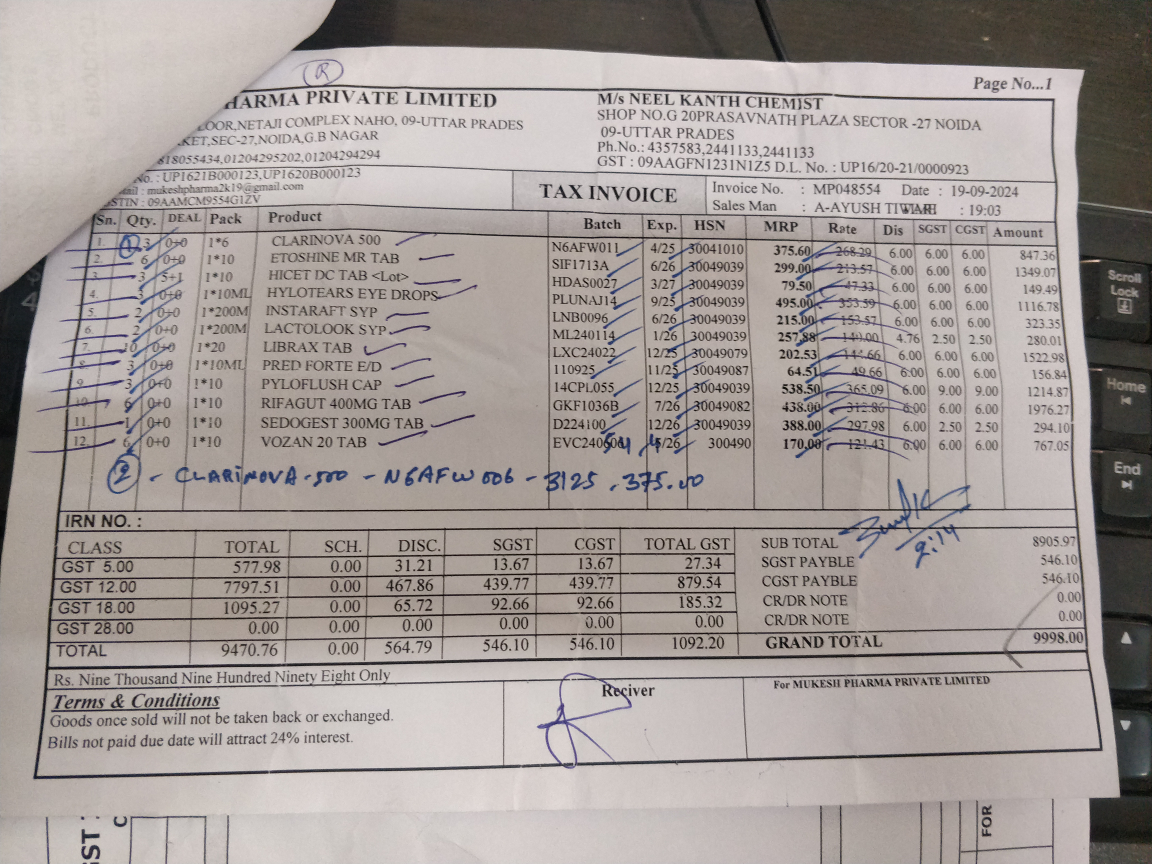 R
HARMA PRIVATE LIMITED
LOOR,NETAJI COMPLEX NAHO, 09-UTTAR PRADES
KET,SEC-27,NOIDA,G.B NAGAR
818055434,01204295202,01204294294
No. : UP1621B000123,UP1620B000123
ail : mukeshpharma2k19@gmail.com
STIN : 09AAMCM9554G1ZV
Page No...1
M/s NEEL KANTH CHEMIST
SHOP NO.G 20PRASAVNATH PLAZA SECTOR -27 NOIDA
09-UTTAR PRADES
Ph.No.: 4357583,2441133,2441133
GST : 09AAGFN1231N1Z5 D.L. No. : UP16/20-21/0000923
TAX INVOICE
Invoice No. : MP048554 Date : 19-09-2024
Sales Man : A-AYUSH : 19:03
Sn. Qty. DEAL Pack Product Batch Exp. HSN MRP Rate Dis SGST CGST Amount
1. 3 0+0 1*6 CLARINOVA 500 N6AFW011 4/25 30041010 375.60 268.29 6.00 6.00 6.00 847.36
2. 6 0+0 1*10 ETOSHINE MR TAB SIF1713A 6/26 30049039 299.00 213.57 6.00 6.00 6.00 1349.07
3. 3 5+1 1*10 HICET DC TAB <Lot> HDAS0027 3/27 30049039 79.50 47.33 6.00 6.00 6.00 149.49
4. 3 0+0 1*10ML HYLOTEARS EYE DROPS PLUNAJ14 9/25 30049039 495.00 353.59 6.00 6.00 6.00 1116.78
5. 2 0+0 1*200M INSTARAFT SYP LNB0096 6/26 30049039 215.00 153.57 6.00 6.00 6.00 323.35
6. 2 0+0 1*200M LACTOLOOK SYP ML240114 1/26 30049039 257.88 140.00 4.76 2.50 2.50 280.01
7. 10 0+0 1*20 LIBRAX TAB LXC24022 12/25 30049079 202.53 144.66 6.00 6.00 6.00 1522.98
8. 3 0+0 1*10ML PRED FORTE E/D 110925 11/25 30049087 64.51 49.66 6.00 6.00 6.00 156.84
9. 3 0+0 1*10 PYLOFLUSH CAP 14CPL055 12/25 30049039 538.50 365.09 6.00 9.00 9.00 1214.87
10. 0+0 1*10 RIFAGUT 400MG TAB GKF1036B 7/26 30049082 438.00 312.86 6.00 6.00 6.00 1976.27
11. 1 0+0 1*10 SEDOGEST 300MG TAB D224100 12/26 30049039 388.00 297.98 6.00 2.50 2.50 294.10
12. 6 0+0 1*10 VOZAN 20 TAB 300490 170.00 121.43 6.00 6.00 6.00 767.05
2 - CLARINOVA-500 - N6AFW006 - 3125 . 375.00
2:14
IRN NO. :
CLASS TOTAL SCH. DISC. SGST CGST TOTAL GST
GST 5.00 577.98 0.00 31.21 13.67 13.67 27.34
GST 12.00 7797.51 0.00 467.86 439.77 439.77 879.54
GST 18.00 1095.27 0.00 65.72 92.66 92.66 185.32
GST 28.00 0.00 0.00 0.00 0.00 0.00 0.00
TOTAL 9470.76 0.00 564.79 546.10 546.10 1092.20
SUB TOTAL 8905.97
SGST PAYBLE 546.10
CGST PAYBLE 546.10
CR/DR NOTE 0.00
CR/DR NOTE 0.00
GRAND TOTAL 9998.00
Rs. Nine Thousand Nine Hundred Ninety Eight Only
Terms & Conditions
Goods once sold will not be taken back or exchanged.
Bills not paid due date will attract 24% interest.
Reciver
For MUKESH PHARMA PRIVATE LIMITED
Scroll
Lock
Home
End
GST
FOR